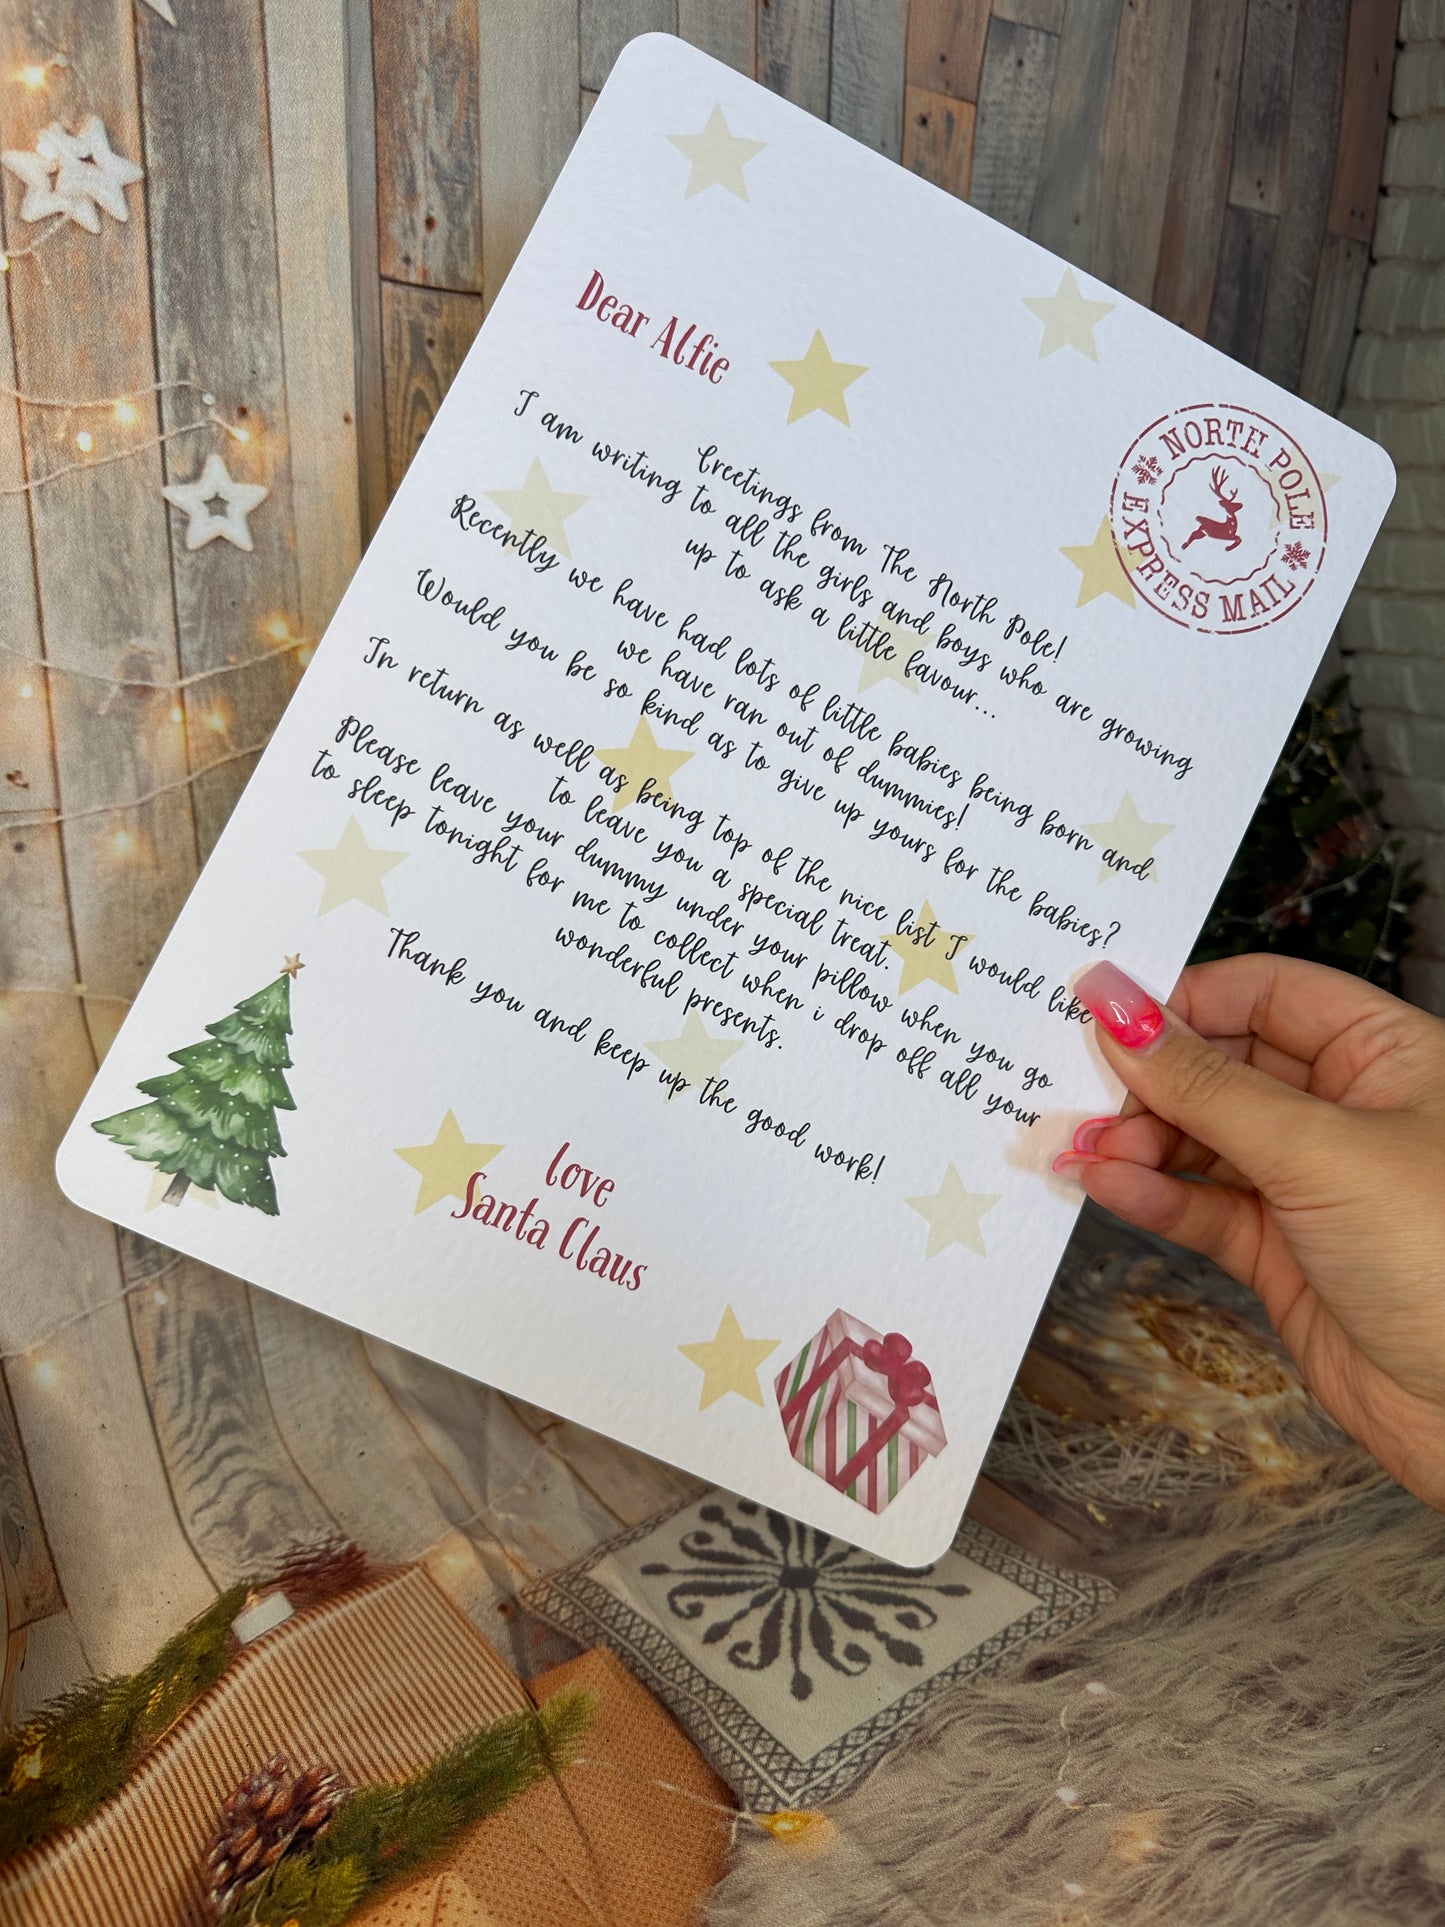 Dear Alfie
NORTH POLE
EXPRESS MAIL
Greetings from The North Pole!
I am writing to all the girls and boys who are growing
up to ask a little favour...
Recently we have had lots of little babies being born and
we have ran out of dummies!
Would you be so kind as to give up yours for the babies?
In return as well as being top of the nice list I would like
to leave you a special treat.
Please leave your dummy under your pillow when you go
to sleep tonight for me to collect when i drop off all your
wonderful presents.
Thank you and keep up the good work!
love
Santa Claus